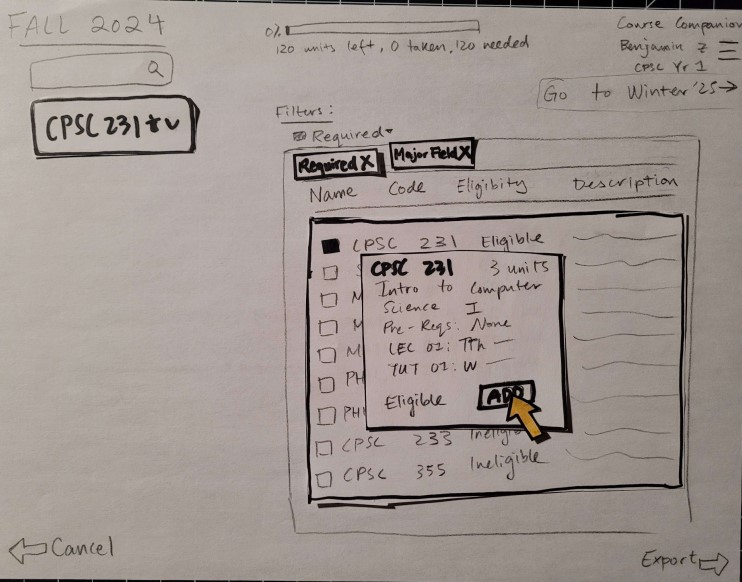 FALL 2024
CPSC 231 ★ v
0%
120 units left, 0 taken, 120 needed
Course Companion
Benjamin Z
CPSC Yr 1
Go to Winter '25 →
Filters:
Required
Required X
Major Field X
Name Code Eligibity Description
CPSC 231 Eligible
S
M
M
M
PH
PH
CPSC 233 Ineligi
CPSC 355 Ineligible
CPSC 231 3 units
Intro to Computer
Science I
Pre-Reqs: None
LEC 01: TTh —
TUT 01: W —
Eligible ADD
Cancel
Export